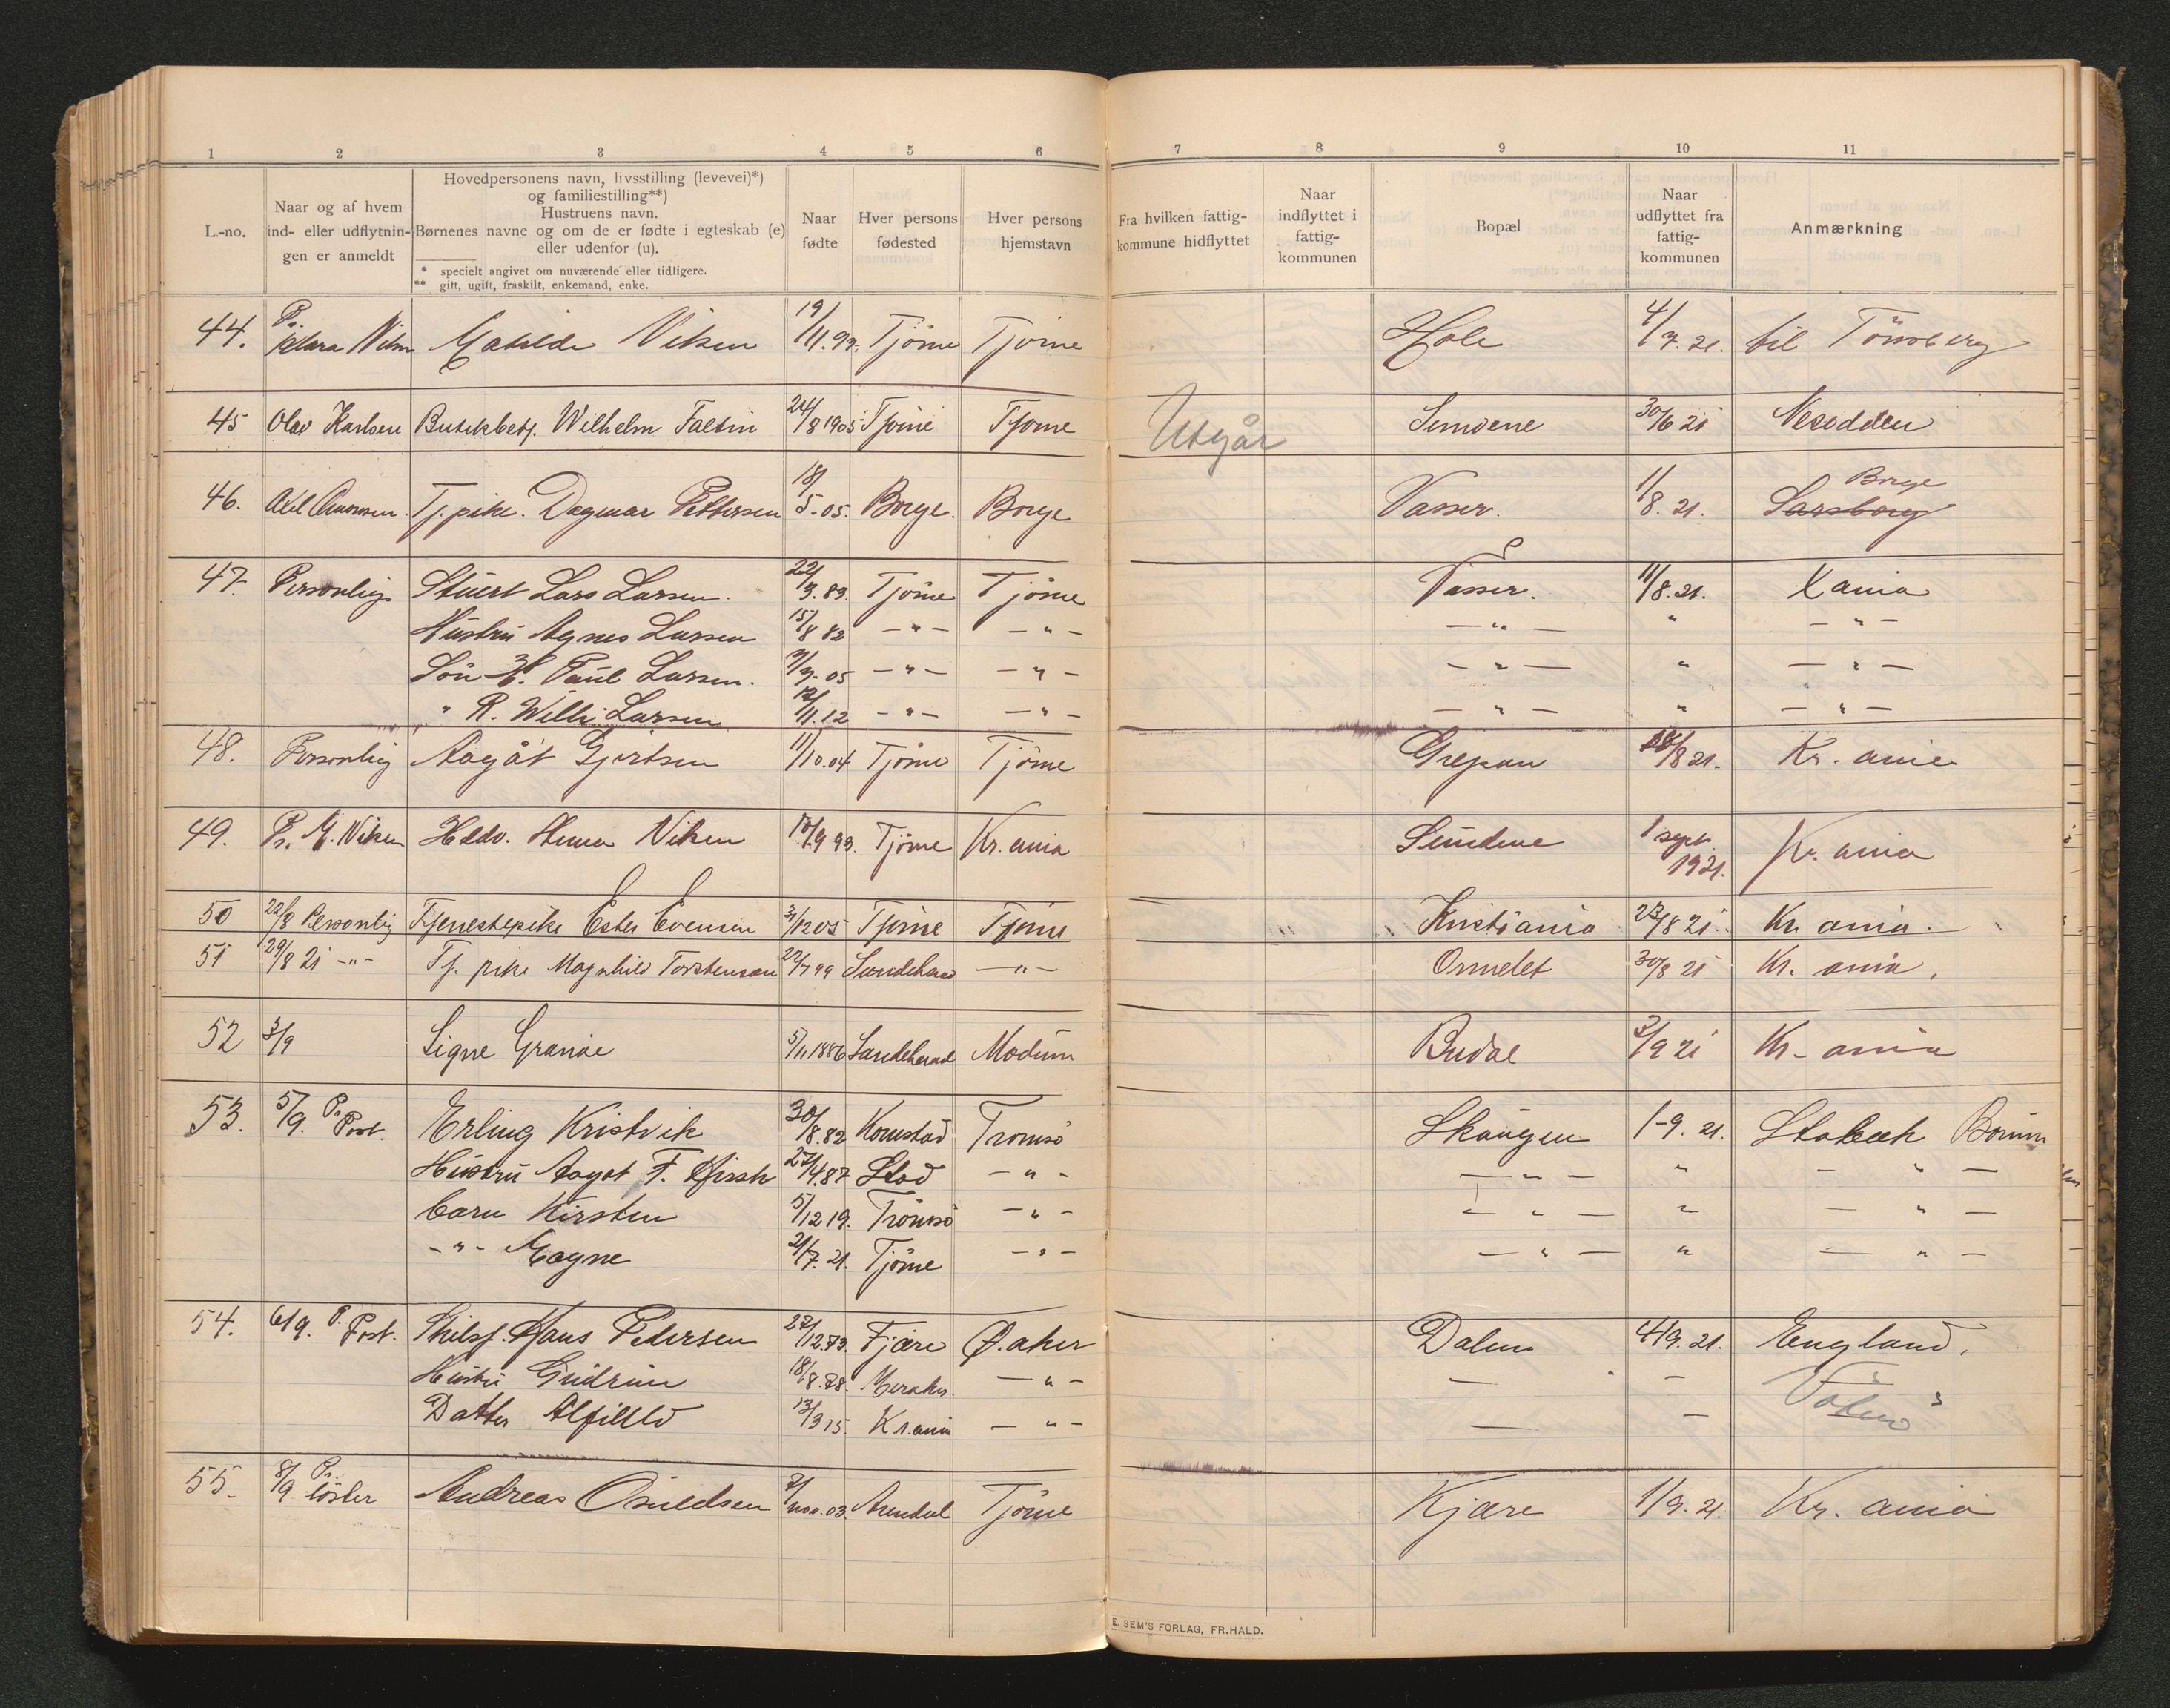 1 2 3 4 5 6 7 8 9 10 11
L.-no.
Naar og af hvem
ind- eller udflytnin-
gen er anmeldt
Hovedpersonens navn, livsstilling (levevei)*)
og familiestilling**)
Hustruens navn.
Børnenes navne og om de er fødte i egteskab (e)
eller udenfor (u).
* specielt angivet om nuværende eller tidligere.
** gift, ugift, fraskilt, enkemand, enke.
Naar
fødte
Hver persons
fødested
Hver persons
hjemstavn
Fra hvilken fattig-
kommune hidflyttet
Naar
indflyttet i
fattig-
kommunen
Bopæl
Naar
udflyttet fra
fattig-
kommunen
Anmærkning
44. Pr. Klara Viken Matilde Viken 19/11.99. Tjöme Tjöme Hole 4/7.21. til Tönsberg
45 Olav Karlsen Butikbetj. Wilhelm Faltin 24/8 1905 Tjöme Tjöme Utgår Sundene 30/6 21 Nesodden
46. Tj.pike. Dagmar Pettersen 18/5-05. Borge. Borge Vasser. 11/8.21. Sarsborg Borge
47. Personlig Stuert Lars Larsen. 22/3.83. Tjöme Tjöme Vasser. 11/8.21. Kania
Hustru Agnes Larsen 15/8 82 -"- -"- -"- " -"-
Sön H. Paul Larsen. 7/9-05 -"- -"- -"- " -"-
" R. Willi Larsen 12/11.12 -"- -"- -"- " -"-
48. Personlig Aagåt Gjertsen 11/10.04 Tjöme Tjöme Grepan /8 21. Kr.ania
49. Pr. M. Viken Viken 10/9 93. Tjöme Kr.ania Sundene 1 sept. 1921. Kr.ania
50 22/8 Personlig Tjenestepike Ester Evensen 31/12 05 Tjöme Tjöme Kristiania 23/8 21. Kr.ania.
51 29/8 21 -"- Tj. pike Magnhild Torstensen 22/7 99 Sandeherad -"- Ormelet 30/8 21 Kr.ania.
52 3/9 Signe Granåe 5/11 1886 Sandeherad Modum Budal 3/9 21 Kr-ania
53. 5/9. Pr. Post. Erling Kristvik 30/8.82 Kornstad Tromsö Skaugen 1-9.21. Stabæk Bærum
Hustru Aagot F. Hirsch 27/4.87 Stod -"- -"- " -"-
barn Kirsten 5/12 19. Tromsö -"- -"- " -"-
-"- Magne 21/7.21. Tjöme -"- -"- " -"-
54. 6/9. P. Post. Skibsf. Hans Pedersen 27/12.73. Fjære Ø.aker Dalen 4/9.21. England.
Hustru Gudrun 18/8.88. -"- — —
Datter Alfhild 13/3 15. Kr.ania -"- — —
55. 8/9 Pr. söster Andreas Osuldsen 2/nov.03. Arendal Tjöme Kjære 1/9.21. Kr.ania
E. SEM'S FORLAG, FR.HALD.